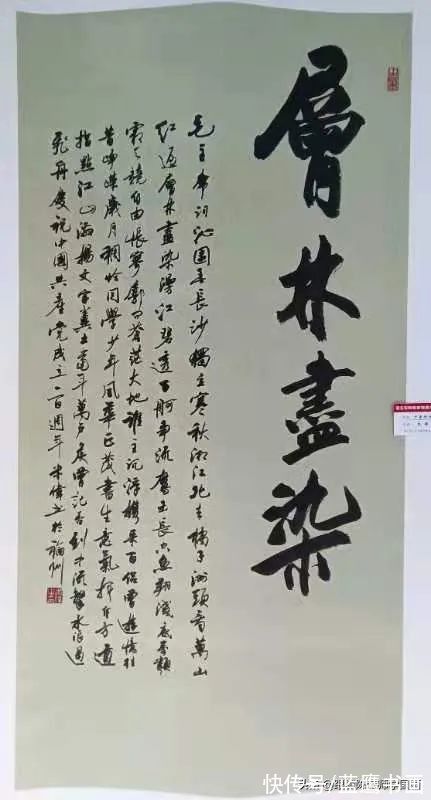 層林盡染
毛主席词沁園春長沙獨立寒秋湘江北去橘子洲頭看萬山
红遍層林盡染漫江碧透百舸争流鹰击長空鱼翔浅底萬類
霜天競自由悵寥廓问蒼茫大地谁主沉浮携来百侣曾遊憶往
昔崢嶸歲月稠恰同學少年風華正茂書生意氣揮斥方遒
指點江山激揚文字糞土當年萬户侯曾记否到中流擊水浪遏
飞舟慶祝中國共産党成立一百週年 於福州
快传号/蓝鹰书画